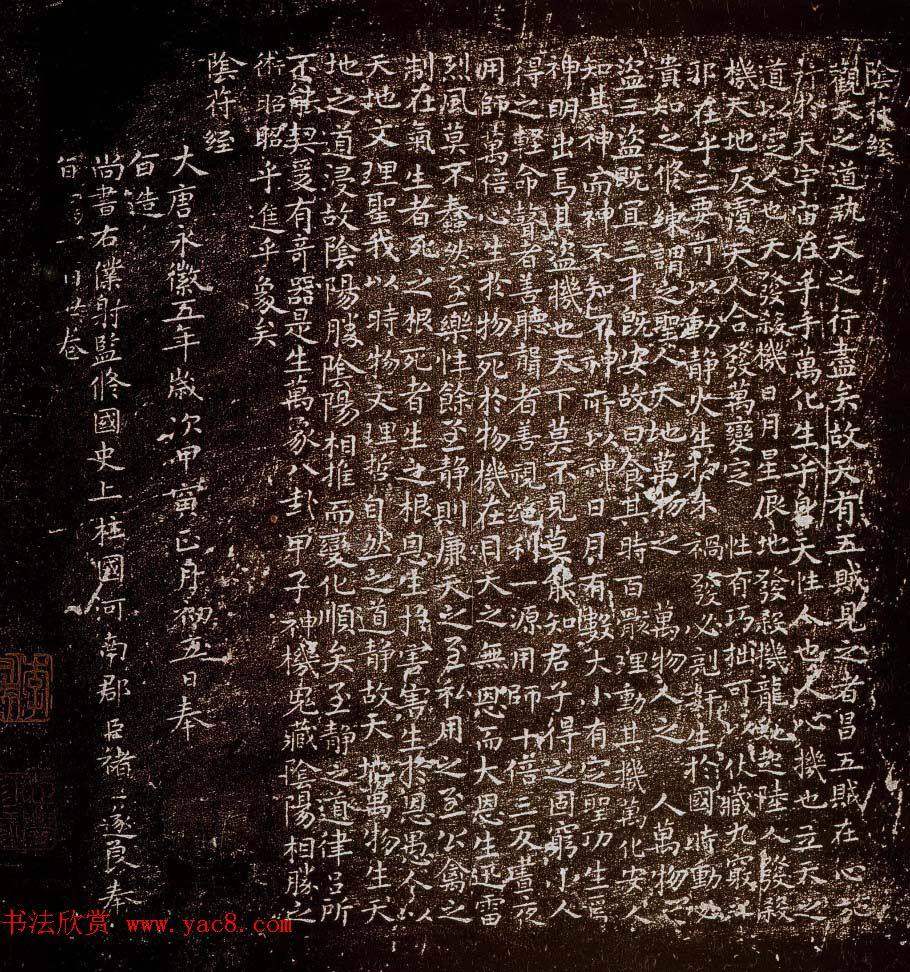 陰符經
觀天之道執天之行盡矣故天有五賊見之者昌五賊在心
行於天宇宙在乎手萬化生乎身天性人也人心機也立天之
道以定人也天發殺機日月星辰地發殺機龍蛇起陸人發殺
機天地反覆天人合發萬變定性有巧拙可以伏藏九竅之
耶在乎三要可以動靜火生於木禍發必剋姧生於國時動必
潰知之修練謂之聖人天地萬物之萬物人之人萬物之
盜三盜既宜三才既安故曰食其時百骸理動其機萬化安人
知其神而神不知不神所以神日月有數大小有定聖功生焉
神明出焉其盜機也天下莫不見莫能知君子得之固窮小人
得之輕命瞽者善聽聾者善視絕利一源用師十倍三反晝夜
用師萬倍心生於物死於物機在目天之無恩而大恩生迅雷
烈風莫不蠢然至樂性餘至靜則廉天之至私用之至公禽之
制在氣生者死之根死者生之根恩生於害害生於恩愚人以
天地文理聖我以時物文理哲自然之道靜故天地萬物生天
地之道浸故陰陽勝陰陽相推而變化順矣至靜之道律呂所
不能契爰有奇器是生萬象八卦甲子神機鬼藏陰陽相勝之
術昭昭乎進乎象矣
陰符經
大唐永徽五年歲次甲寅正月初五日奉
旨造
尚書右僕射監修國史上柱國河南郡臣褚遂良奉
旨
書法欣赏 www.yac8.com